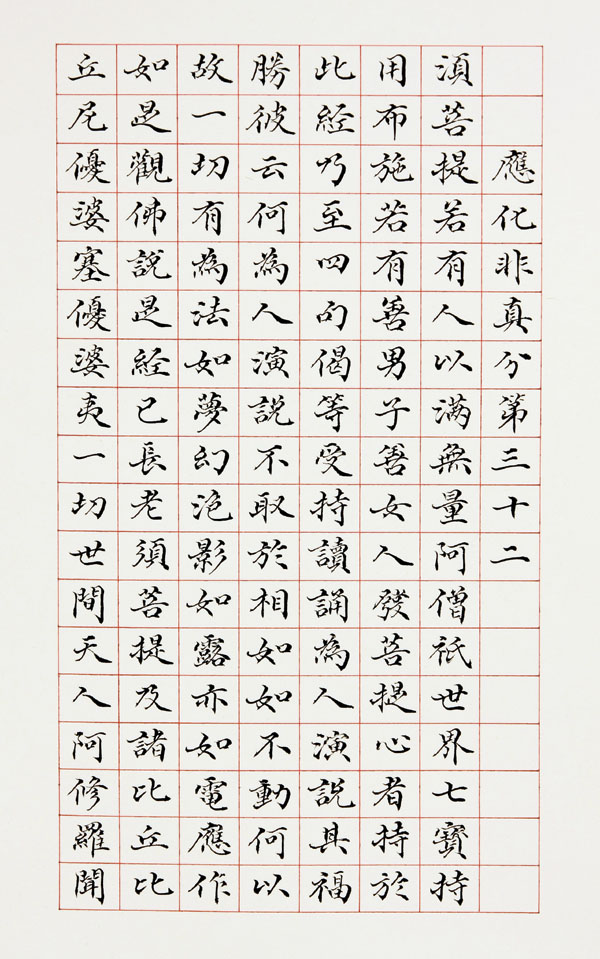 應化非真分第三十二
須菩提若有人以滿無量阿僧祇世界七寶持
用布施若有善男子善女人發菩提心者持於
此經乃至四句偈等受持讀誦為人演說其福
勝彼云何為人演說不取於相如如不動何以
故一切有為法如夢幻泡影如露亦如電應作
如是觀佛說是經已長老須菩提及諸比丘比
丘尼優婆塞優婆夷一切世間天人阿修羅聞